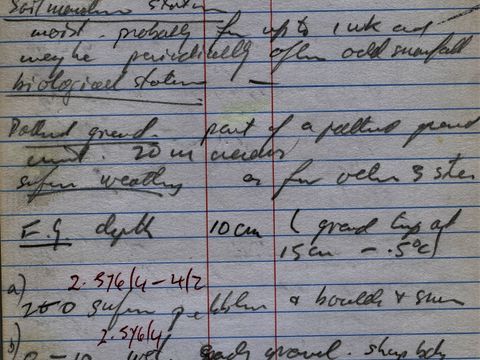 Soil moisture status
moist. probably for up to 1 wk and
maybe periodically after odd snowfall
biological status —
Patterned ground. part of a patterned ground
unit. 20 m
surface weathering as for other 3 sites
E.G depth 10cm ( ground temp at
15cm - .5°C)
a) 2.576/4 - 4/2
surface pebbles & boulders &
b) 2.5Y6/4
gravel.